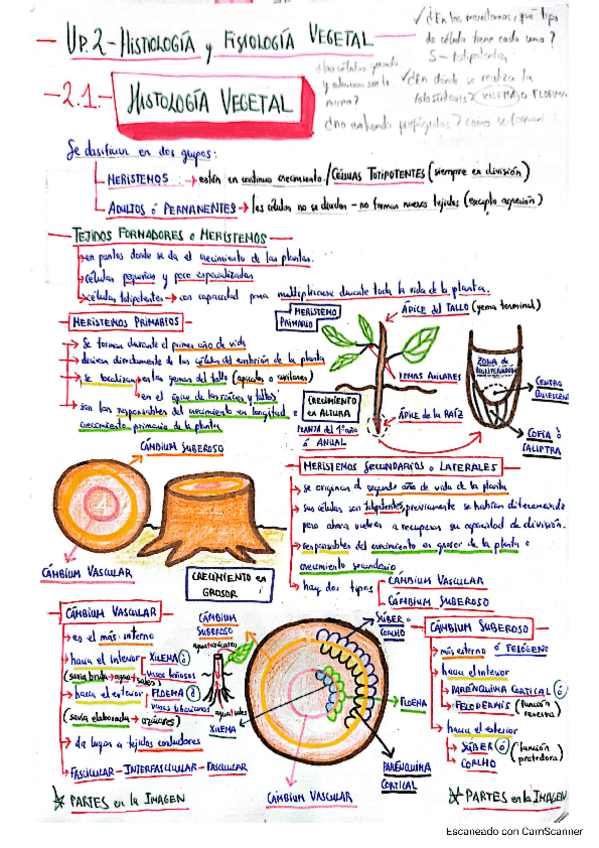 UP.2-HISTIOLOGÍA y FISIOLOGÍA VEGETAL
✓¿En los meristemos, que tipo
de célula tiene cada uno?
S - totipotentes
-2.1.- HISTOLOGÍA VEGETAL
✓¿En dónde se realiza la
fotosíntesis? XILEMA o FLOEMA
¿no entiendo propágulos? como se forman
Se clasifican en dos grupos:
MERISTEMOS: → están en continuo crecimiento. / CÉLULAS TOTIPOTENTES (siempre en división)
ADULTOS ó PERMANENTES → las células no se dividen - no forman nuevos tejidos (excepto agresión)
TEJIDOS FORMADORES o MERISTEMOS
→ en puntos donde se da el crecimiento de las plantas.
→ células pequeñas y poco especializadas
→ células totipotentes → con capacidad para multiplicarse durante toda la vida de la planta.
MERISTEMOS PRIMARIOS
→ Se forman durante el primer año de vida
→ derivan directamente de las células del embrión de la planta
→ se localizan en las yemas del tallo (apicales o axilares)
→ en el ápice de las raíces y tallos
→ son los responsables del crecimiento en longitud o
crecimiento primario de la planta
MERISTEMO
PRIMARIO
ÁPICE del TALLO (yema terminal)
YEMAS AXILARES
CRECIMIENTO
en ALTURA
PLANTA del 1er año
ó ANUAL
ÁPICE de la RAÍZ
ZONA de
CENTRO
QUIESCENTE
COFIA ó
CALIPTRA
CÁMBIUM SUBEROSO
CÁMBIUM VASCULAR
CRECIMIENTO en
GROSOR
MERISTEMOS SECUNDARIOS o LATERALES
→ se originan el segundo año de vida de la planta
→ sus células son totipotentes, previamente se habían diferenciado
pero ahora vuelven a recuperar su capacidad de división.
→ responsables del crecimiento en grosor de la planta o
crecimiento secundario
→ hay dos tipos
CÁMBIUM VASCULAR
CÁMBIUM SUBEROSO
CÁMBIUM VASCULAR
→ es el más interno
→ hacia el interior XILEMA ó
vasos leñosos
(savia bruta → agua + sales)
→ hacia el exterior FLOEMA ó
vasos liberianos
(savia elaborada → azúcares)
→ da lugar a tejidos conductores
→ FASCICULAR - INTERFASCICULAR - FASCICULAR
☆ PARTES en la IMAGEN
CÁMBIUM
SUBEROSO
XILEMA
SÚBER o
CORCHO
FLOEMA
PARÉNQUIMA
CORTICAL
CÁMBIUM VASCULAR
CÁMBIUM SUBEROSO
→ más externo ó FELÓGENO
→ hacia el interior
→ PARÉNQUIMA CORTICAL ó
→ FELODERMIS (función
reserva)
→ hacia el exterior
→ SÚBER ó (función
CORCHO protectora)
☆ PARTES en la IMAGEN
Escaneado con CamScanner